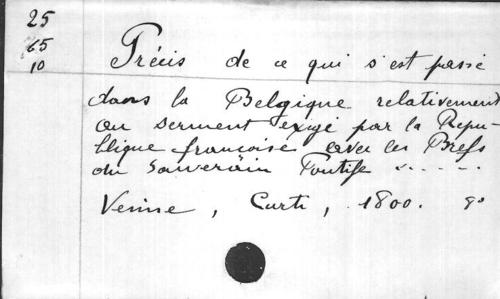 25
65
10
Précis de ce qui s'est passé
dans la Belgique relativement
au serment exigé par la Répu-
blique françoise avec les Brefs
du Souverain Pontife . . . . .
Venise, Curti, 1800. 8°